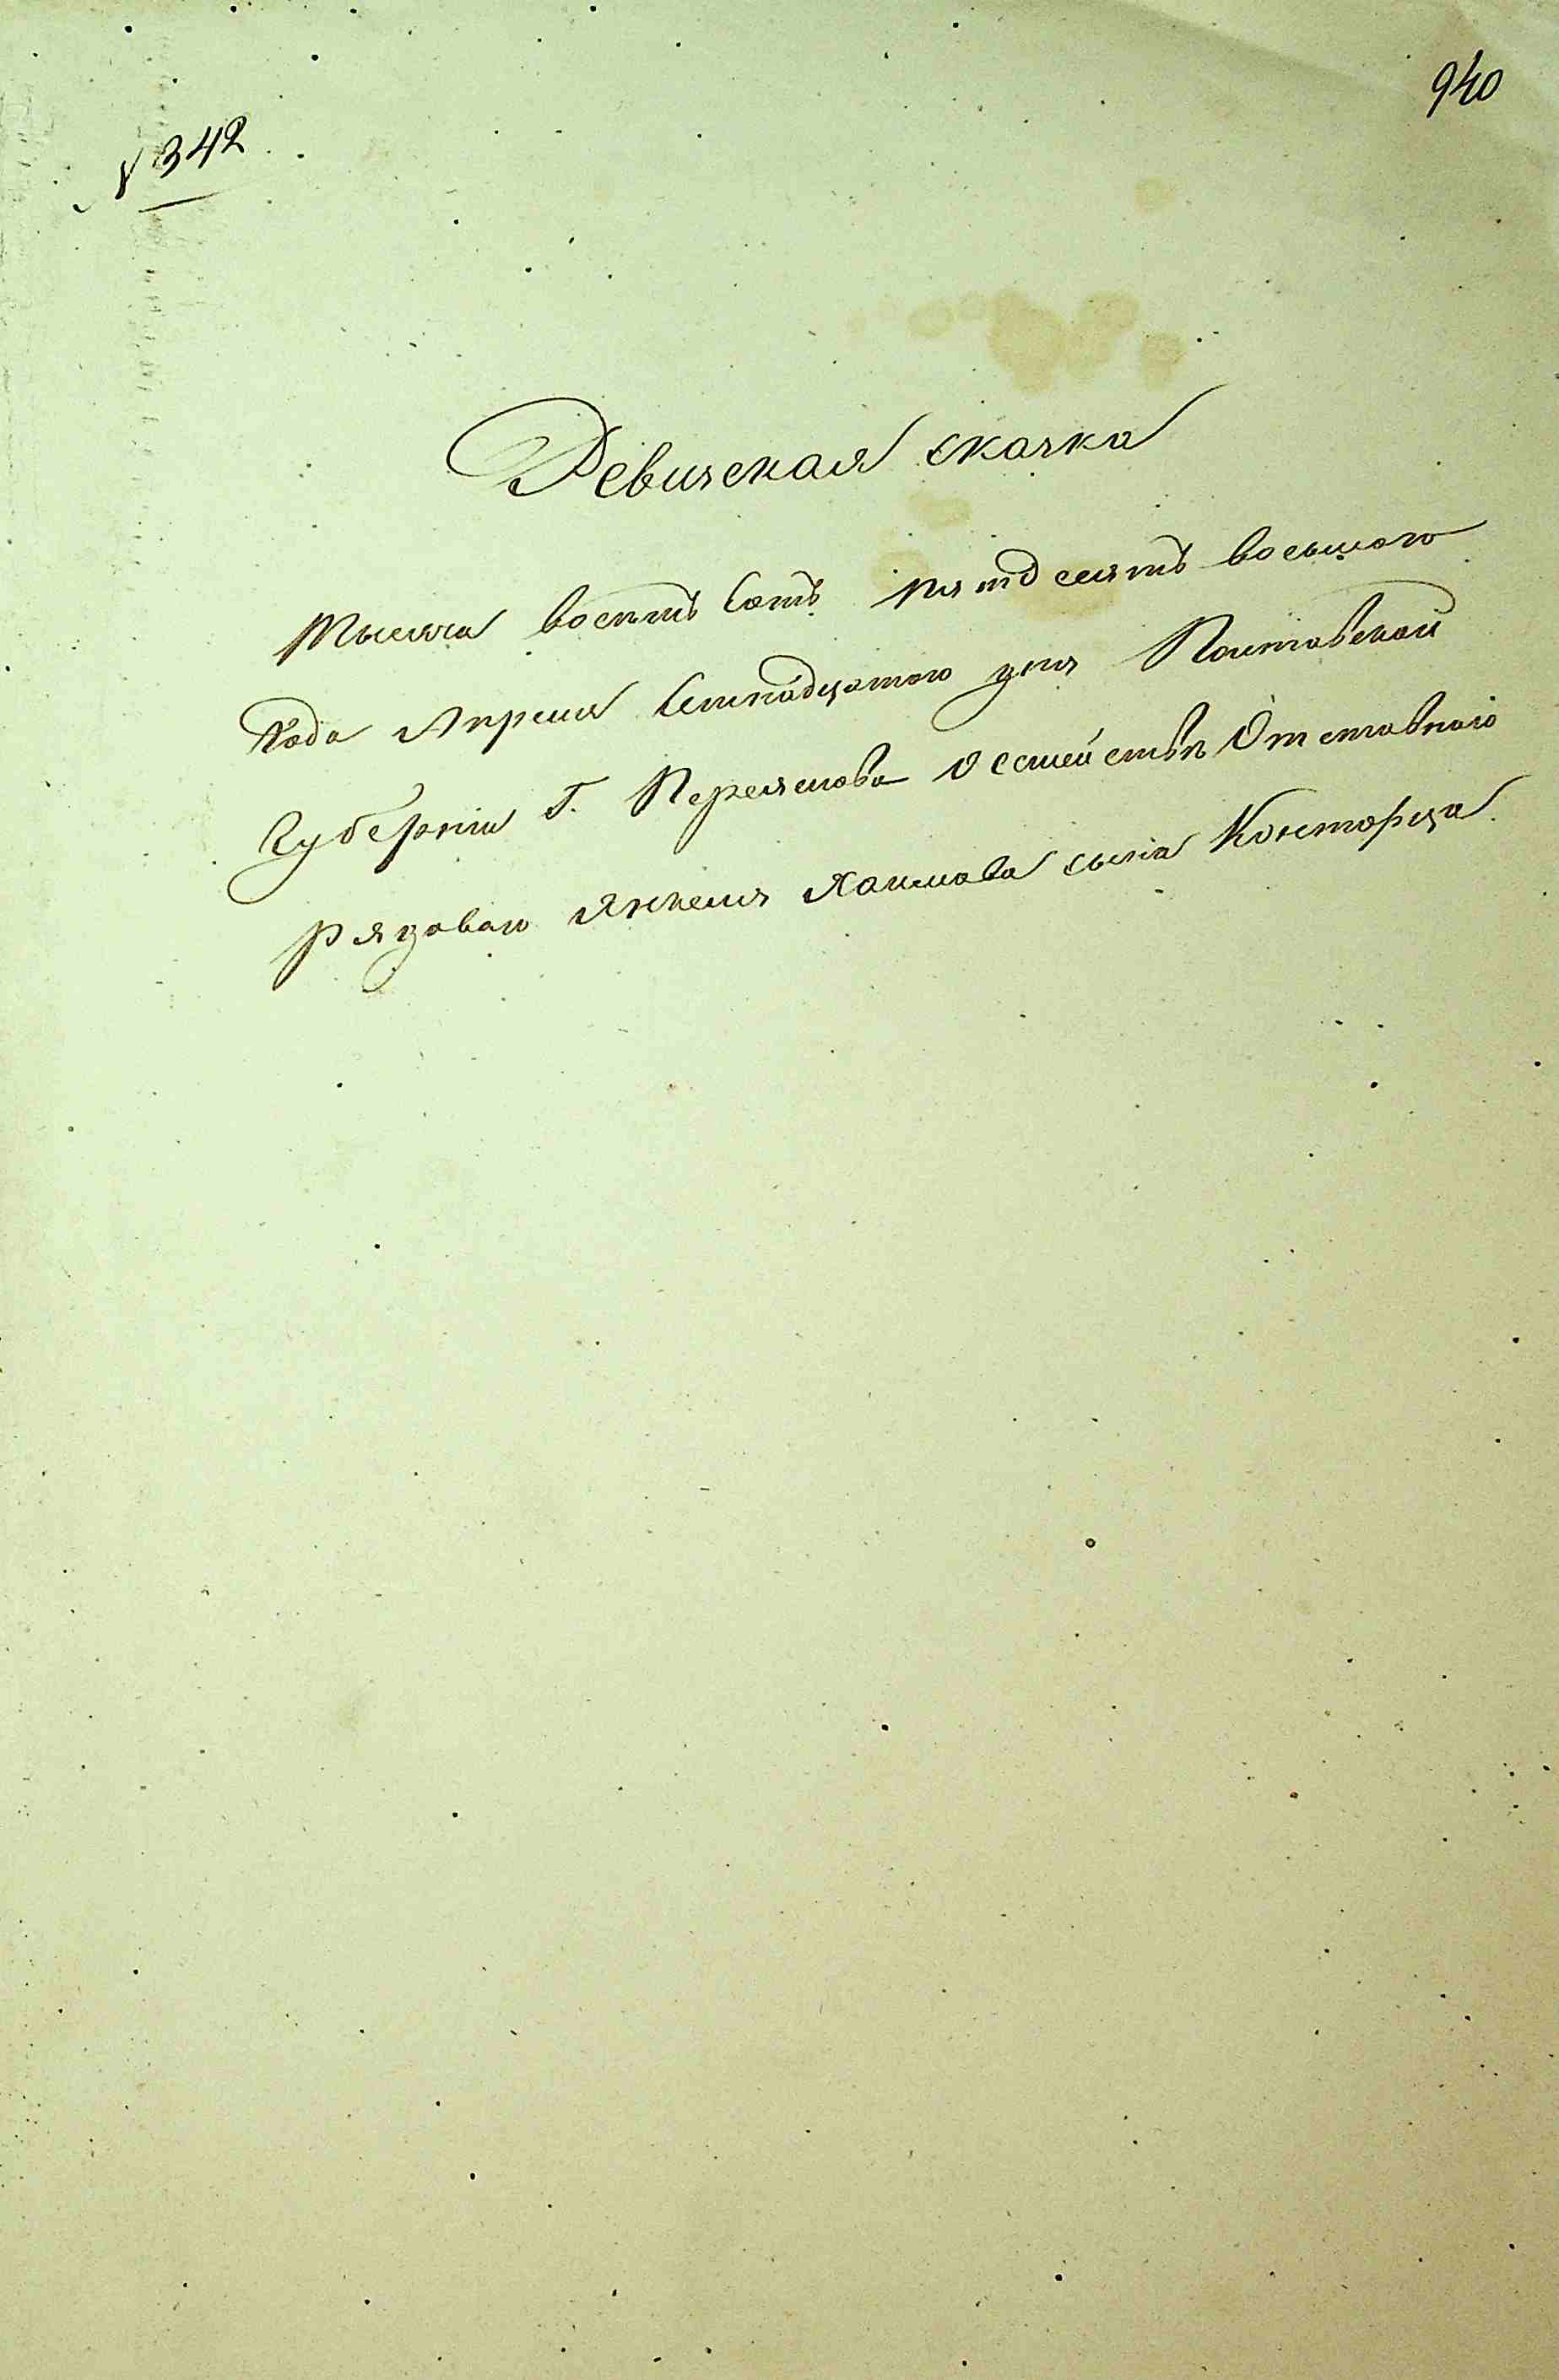 940
№ 342
Ревизская сказка
Тысяча восемь сотъ пятдесятъ восьмого
Года Апреля Семнадцатого дня Полтавской
Губерніи Г. Переяслова О семействѣ Отставного
рядового Янкеля Хаимова сына